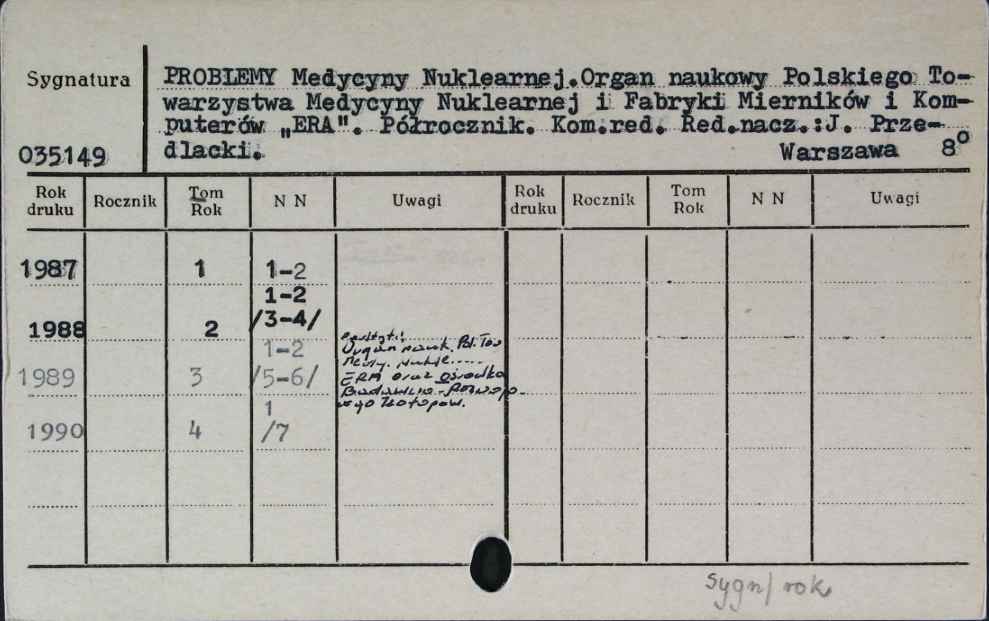 Sygnatura
PROBLEMY Medycyny Nuklearnej.Organ naukowy Polskiego To-
warzystwa Medycyny Nuklearnej i Fabryki Mierników i Kom-
puterów „ERA". Półrocznik. Kom.red. Red.nacz.:J. Prze-
dlacki. Warszawa 8°
035149
Rok druku Rocznik Tom Rok N N Uwagi Rok druku Rocznik Tom Rok N N Uwagi
1987 1 1-2
1988 2 1-2 /3-4/
1989 3 1-2 /5-6/
1990 4 1 /7
Organ nauk. Pol. Tow
Medy. Nukle.....
ERA oraz Ośrodka
Badawczo-Rozwojo-
wego Izotopów.
Sygn/ rok